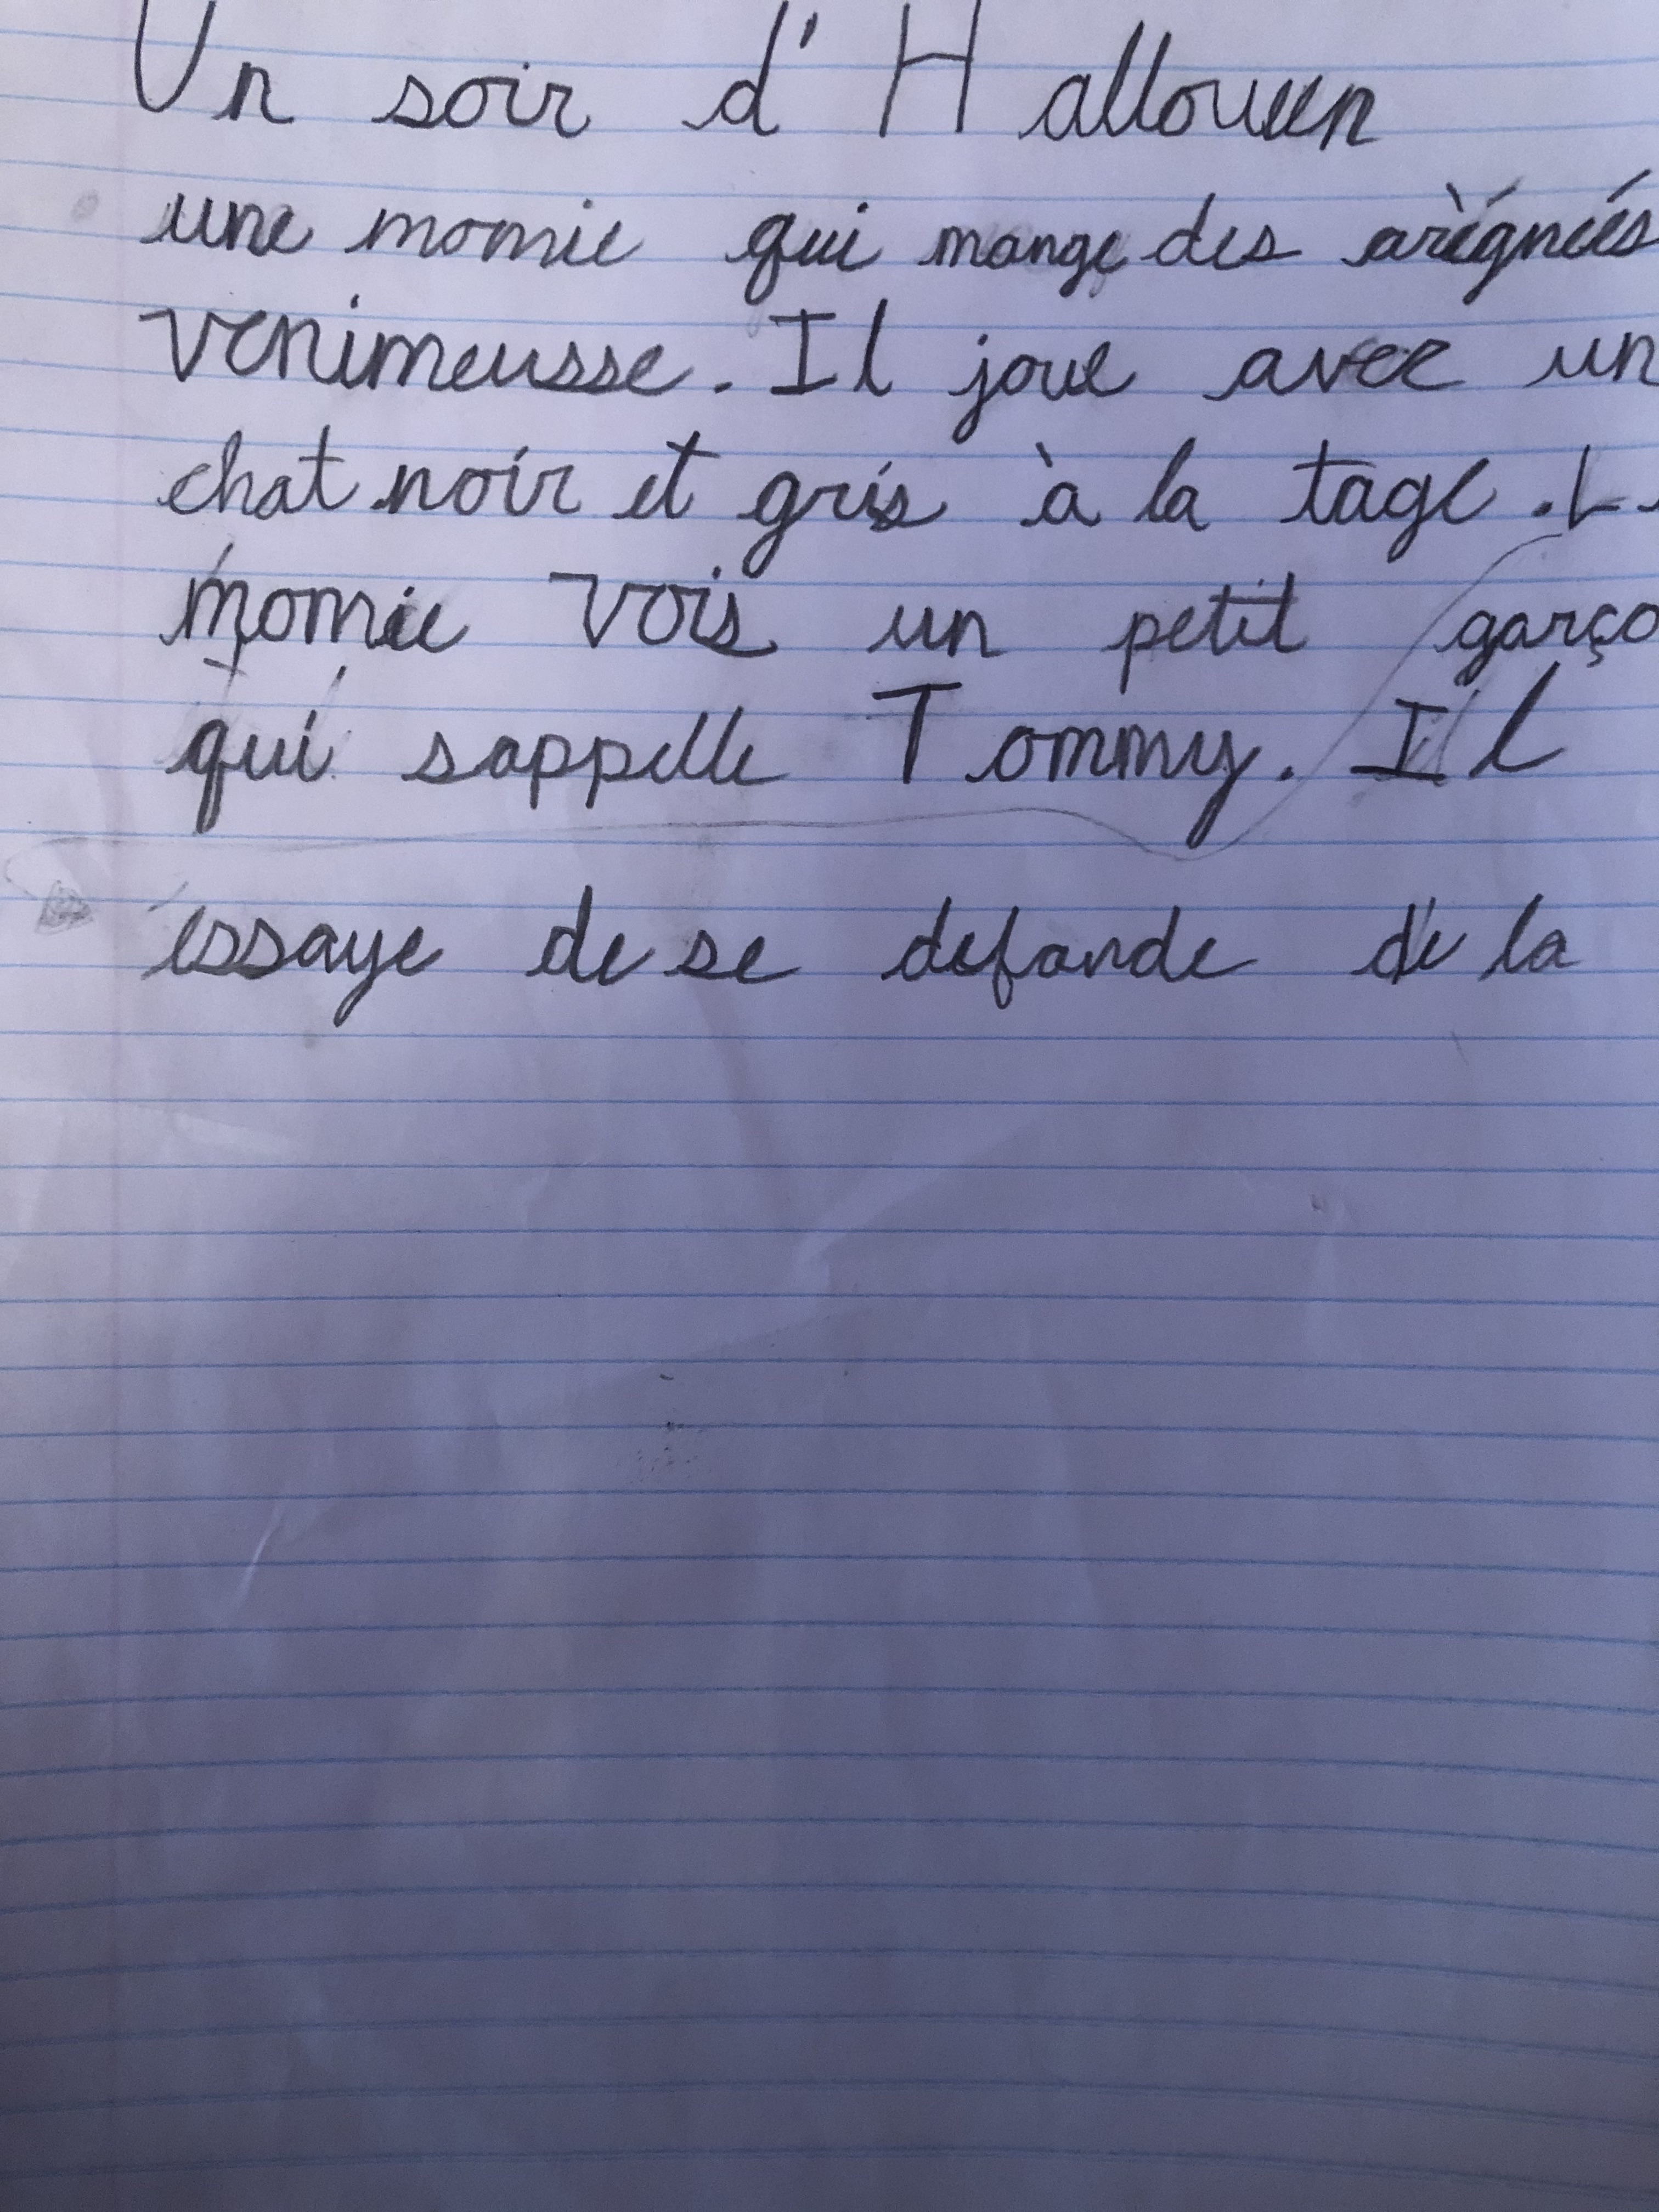 Un soir d'Hallouen
une momie qui mange des arègnées
venimeusse. Il joue avec un
chat noir et gris à la tage.
momie vois un petit garço
qui sappelle Tommy. Il
éssaye de se defande de la